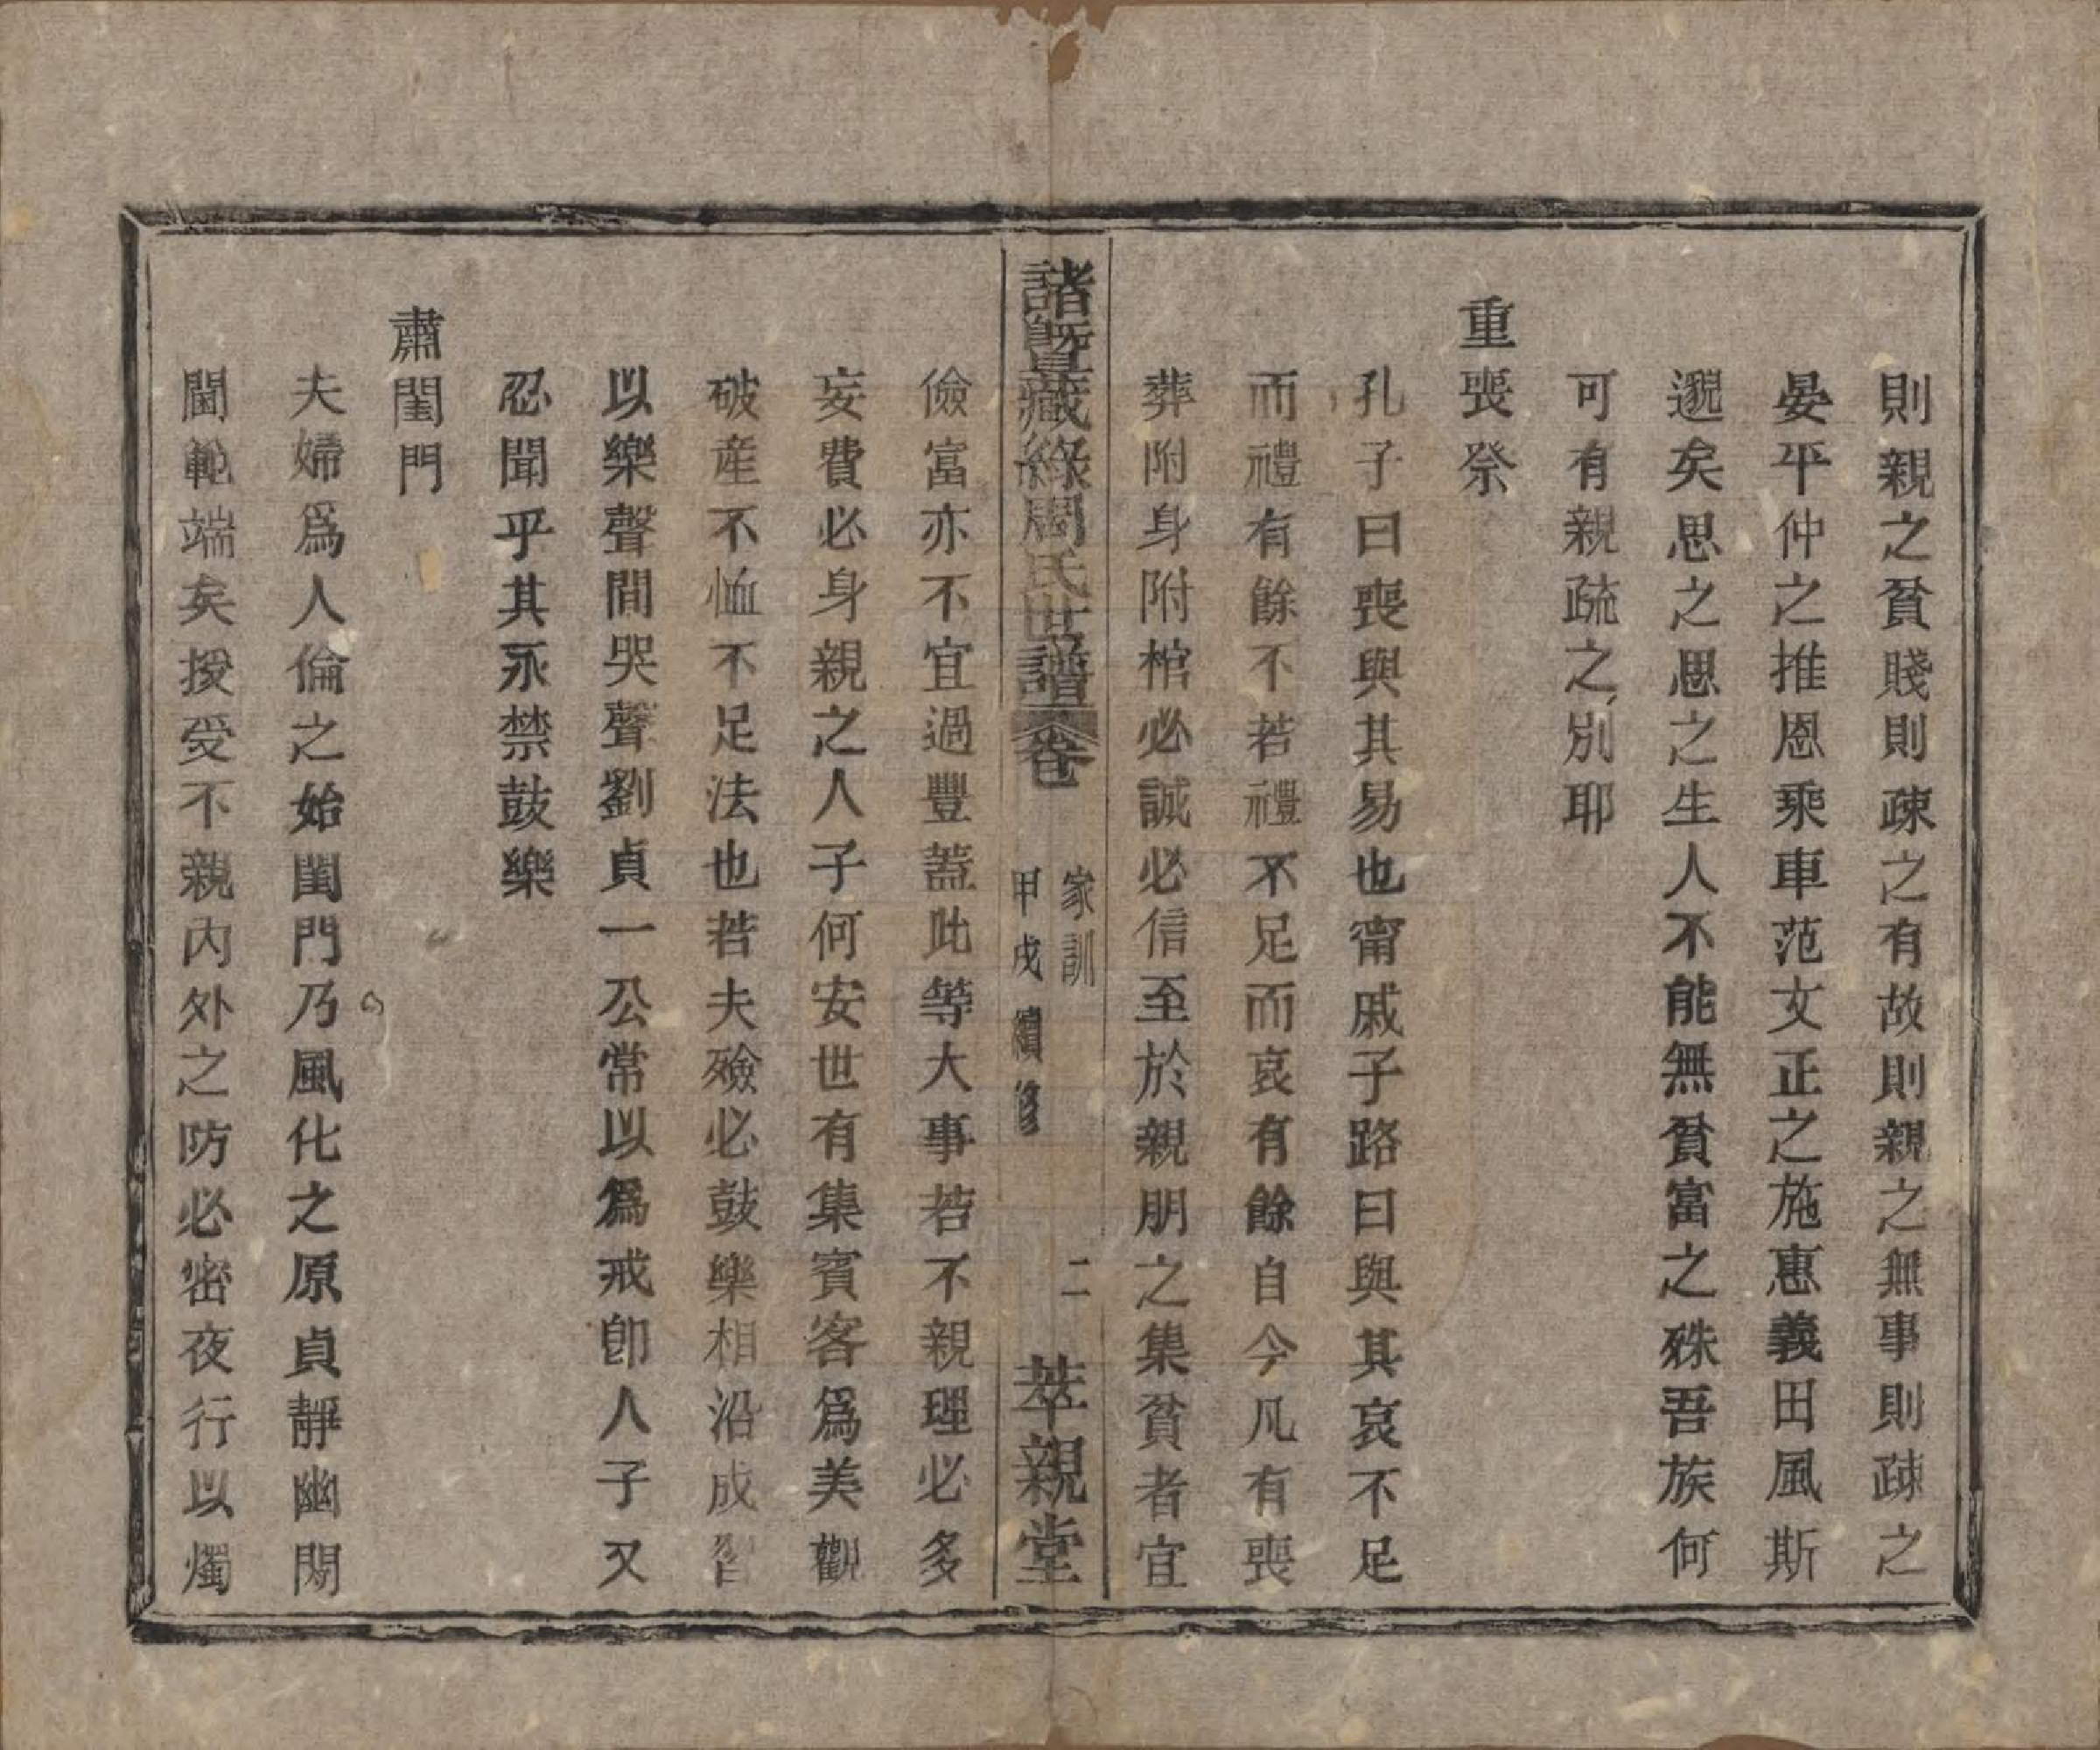 則親之貧賤則疎之有故則親之無事則疎之
晏平仲之推恩乘車范文正之施惠義田風斯
邈矣思之思之生人不能無貧富之殊吾族何
可有親疏之別耶
重喪祭
孔子曰喪與其易也甯戚子路曰與其哀不足
而禮有餘不若禮不足而哀有餘自今凡有喪
葬附身附棺必誠必信至於親朋之集貧者宜
諸暨藏綠周氏世譜
卷
家訓
甲戌續修
二
萃親堂
儉富亦不宜過豐蓋此等大事若不親理必多
妄費必身親之人子何安世有集賓客爲美觀
破産不恤不足法也若夫殮必鼓樂相沿成習
以樂聲間哭聲劉貞一公常以爲戒卽人子又
忍聞乎其永禁鼓樂
肅閨門
夫婦爲人倫之始閨門乃風化之原貞靜幽閑
閫範端矣授受不親內外之防必密夜行以燭